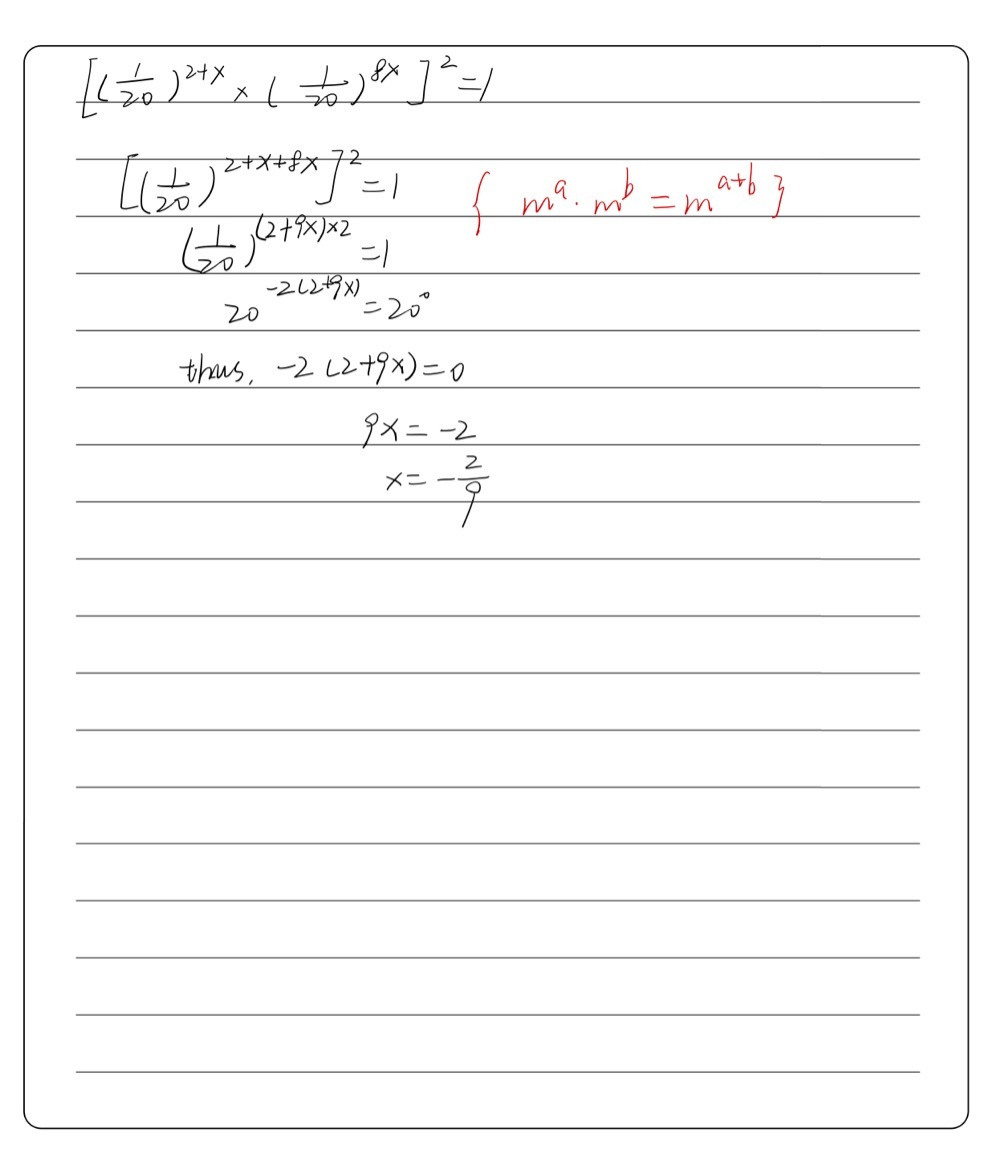 [(1/20)^(2+x) × (1/20)^(8x)]^2 = 1
[(1/20)^(2+x+8x)]^2 = 1 { m^a · m^b = m^(a+b) }
(1/20)^((2+9x)×2) = 1
20^(-2(2+9x)) = 20^0
thus, -2(2+9x)=0
9x = -2
x = -2/9